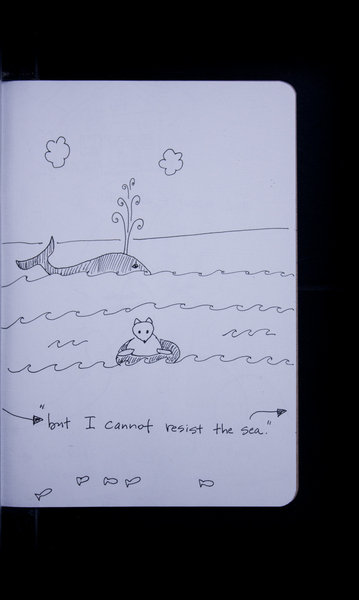 "but I cannot resist the sea."